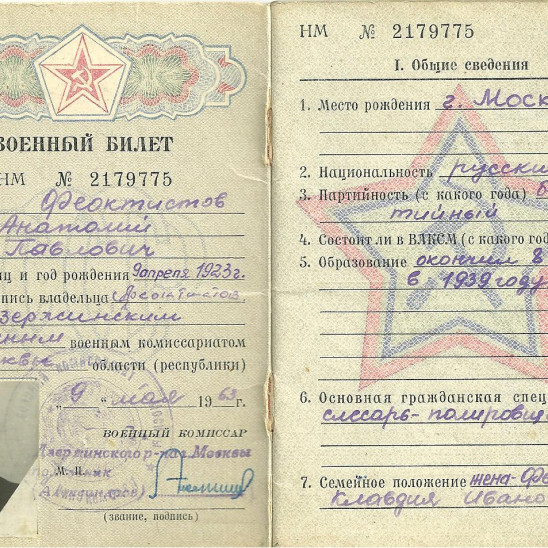 ВОЕННЫЙ БИЛЕТ
НМ № 2179775
Феоктистов
Анатолий
Павлович
иц и год рождения 9 апреля 1923 г.
пись владельца
зержинским
военным комиссариатом
области (республики)
"9" мая 1963 г.
ВОЕННЫЙ КОМИССАР
Дзержинского р-на г. Москвы
М. П.
(звание, подпись)
НМ № 2179775
I. Общие сведения
1. Место рождения г. Моск
2. Национальность русский
3. Партийность (с какого года) б
тийный
4. Состоит ли в ВЛКСМ (с какого год
5. Образование окончил 8
в 1939 году
6. Основная гражданская спец
слесарь-полировщ
7. Семейное положение жена-Фе
Клавдия Ивано